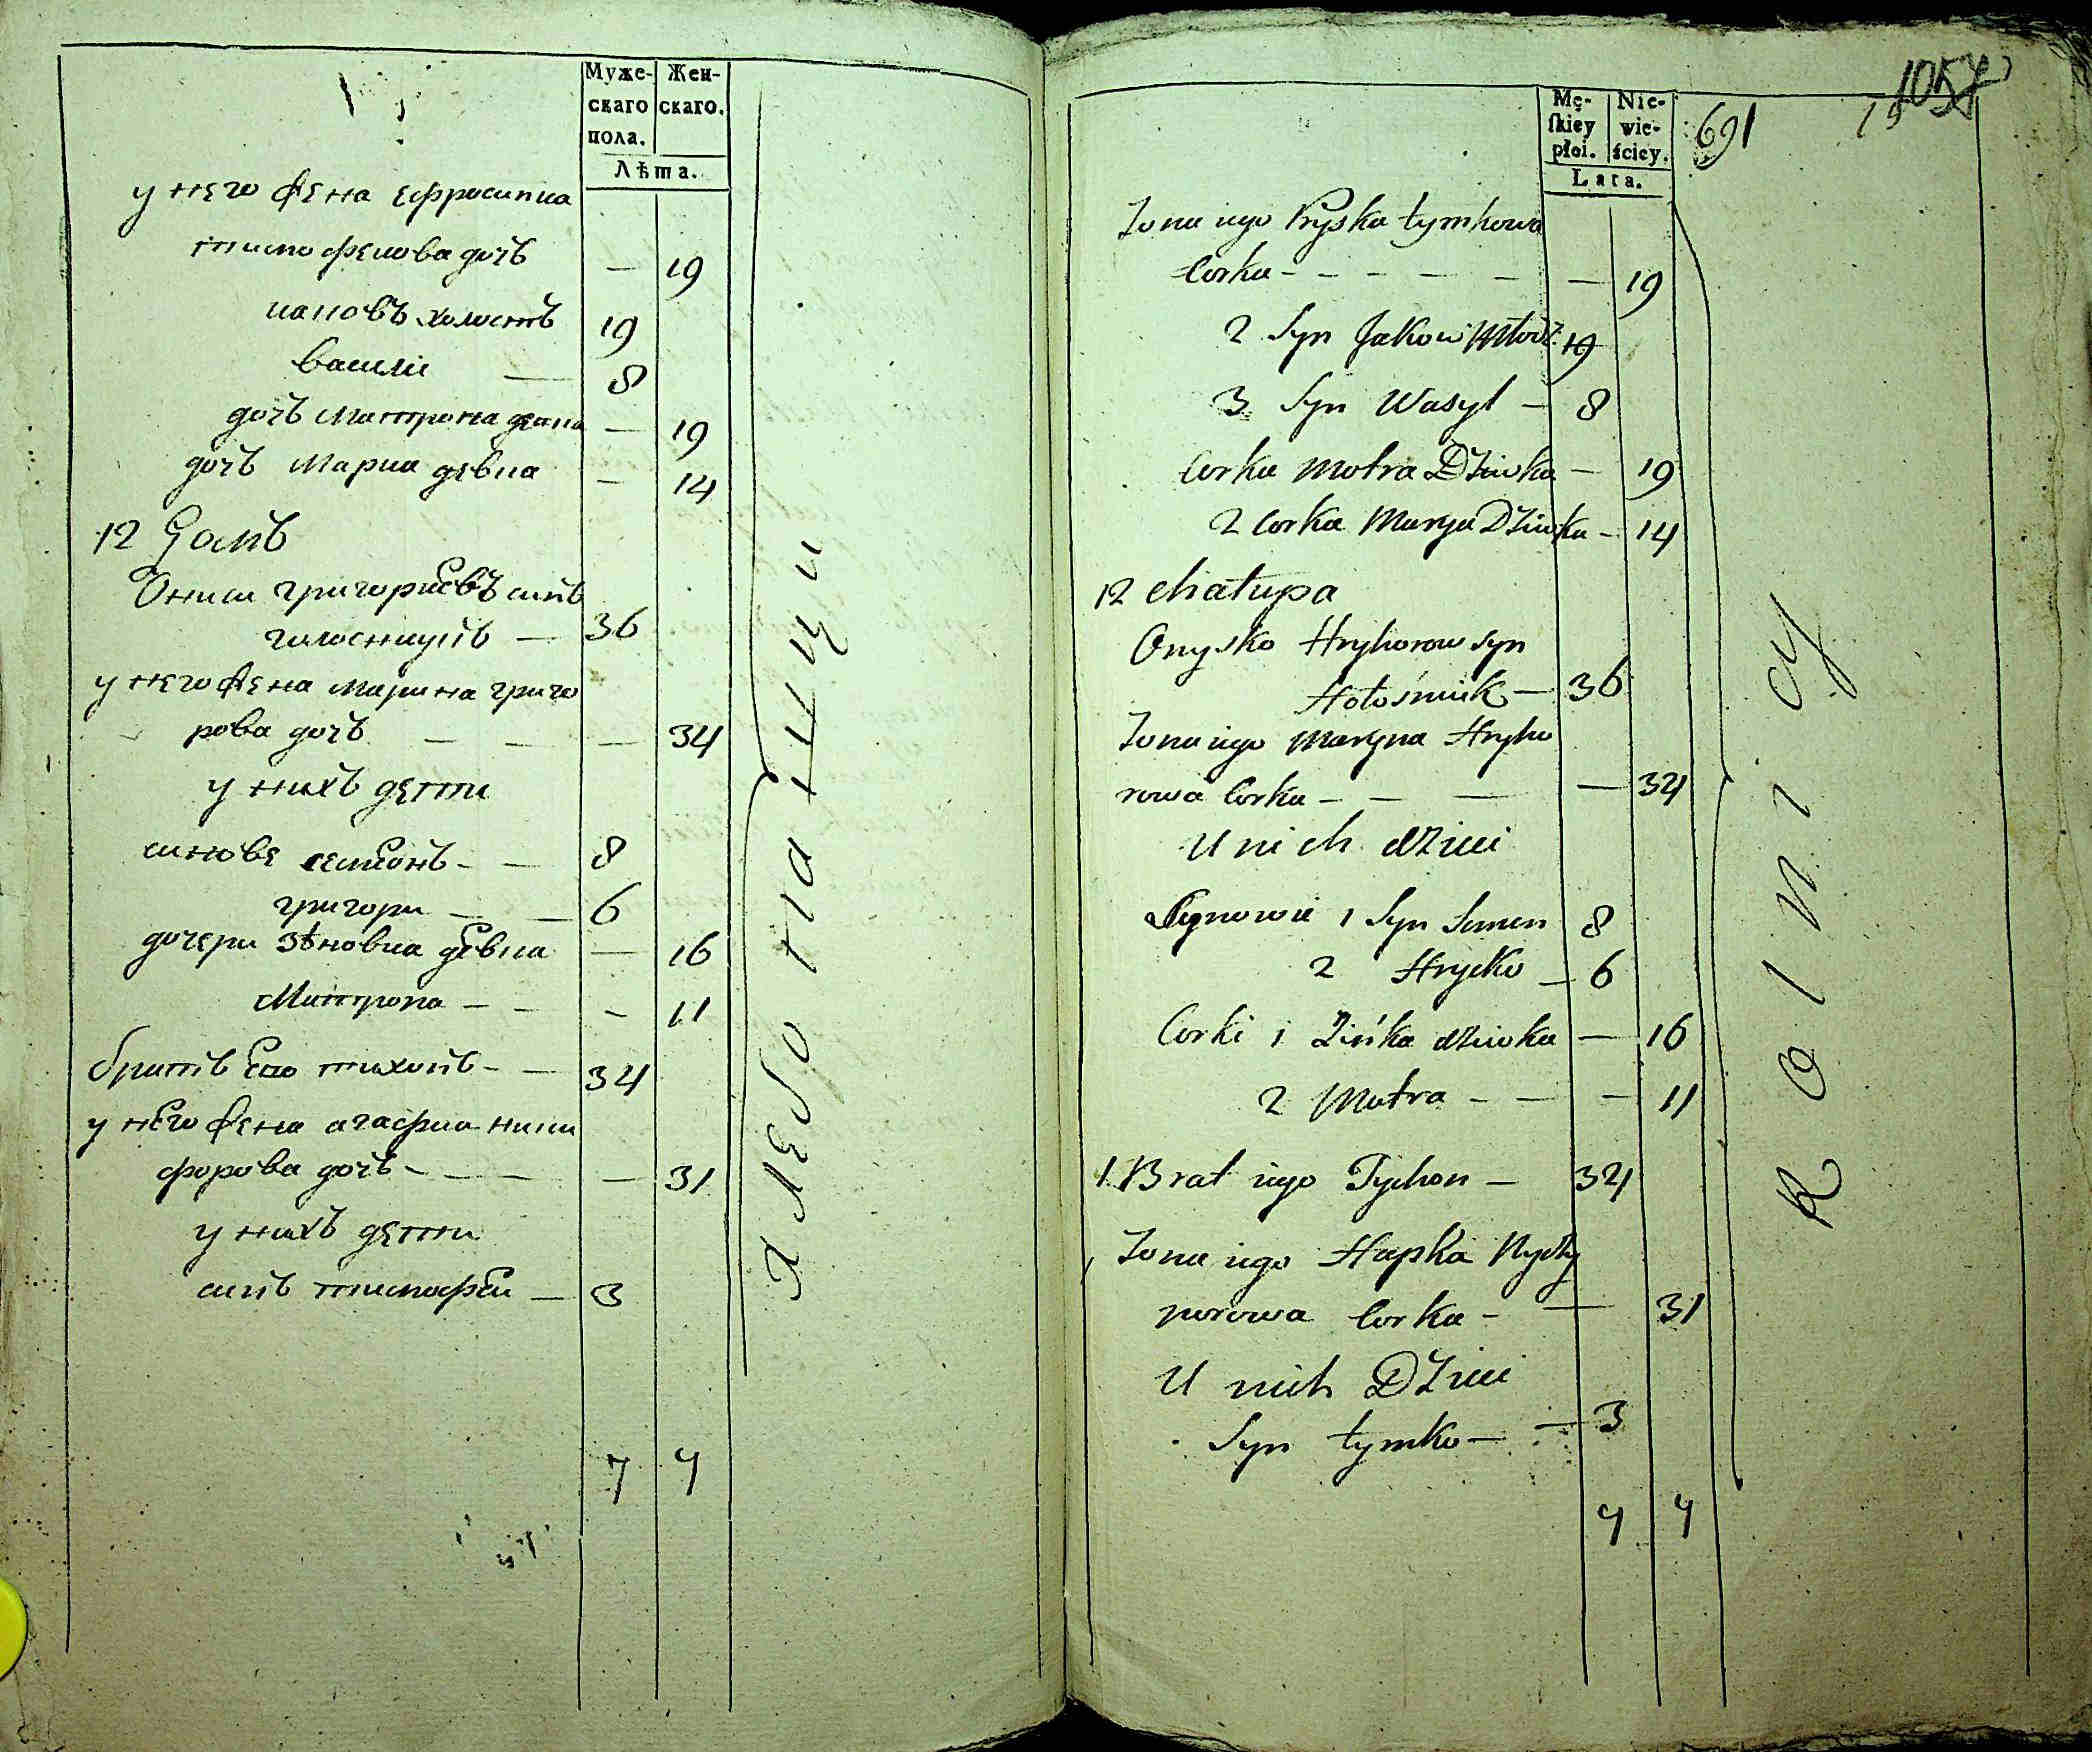 Муже-
скаго
пола.
Жен-
скаго.
Лѣта.
у него жена ефросиниа
тимофеиова дочъ — 19
иаковъ холостъ 19
василіи — 8
дочъ Матрона девиа — 19
дочъ Мариа девиа — 14
12 Домъ
Ониси григориевъ синъ
голосницкъ — 36
у него жена марина григо
рова дочъ — — — 34
у нихъ дети
синове семіонъ — — 8
григори — — 6
дочери зѣновиа девиа — 16
Матрона — — - 11
братъ Его тихонъ — — 34
у него жена агафиа ники
форова дочъ — — — — 31
у нихъ дети
синъ тимофеи — 3
7 7
хлебопашци
1057
691
Mę-
ſkiey
płci.
Nie-
wie-
ściey.
Lata.
Zona iego Pryska tymkowa
Corka - - - — — — 19
2 Syn Jakow Młodz. 19
3 Syn Wasyl — 8
Corka Motra Dziwka — 19
2 Corka Marya Dziwka — 14
12 chałupa
Onysko Hryhorow syn
Hołośniuk — 36
Zona iego Maryna Hryho
rowa Corka — — — — 34
U nich dzieci
Synowie 1 Syn Semen 8
2 Hrycko — 6
Corki 1 Zińka dziwka — 16
2 Motra - — — 11
1 Brat iego Tychon — 34
Zona iego Hapka Nyczy
porowa Corka - — 31
U nich Dzieci
Syn tymko — — 3
7 7
Rolnicy